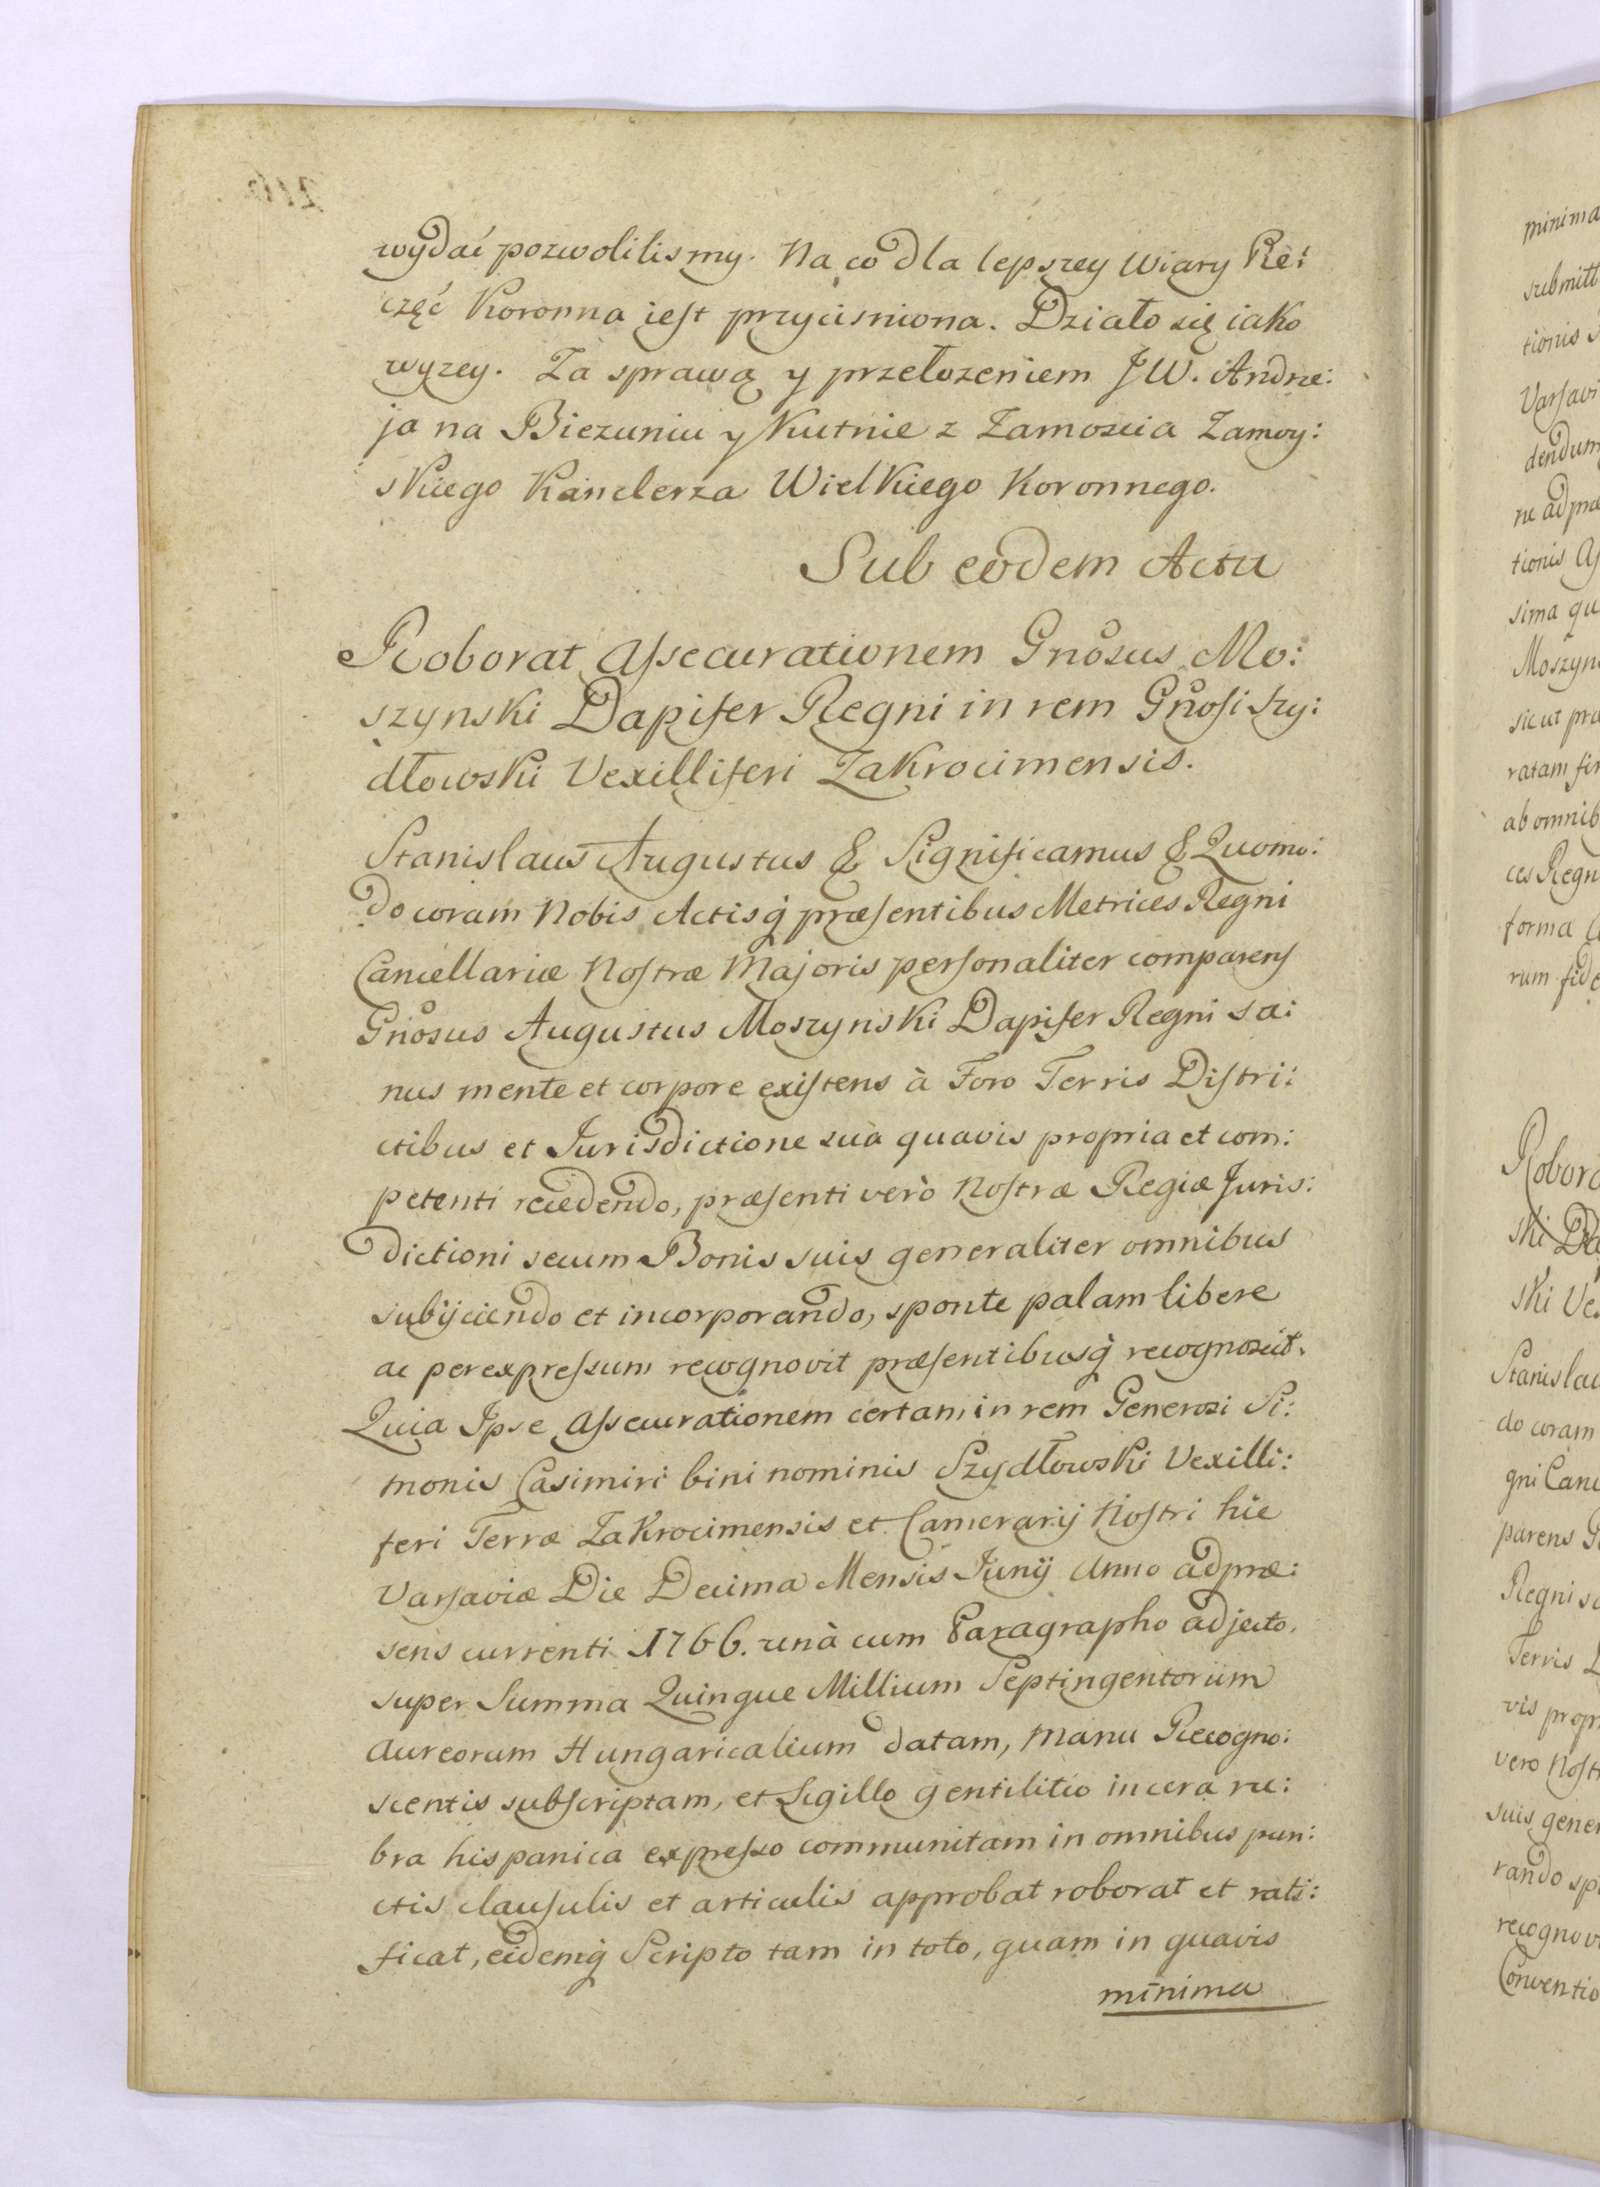 wydać pozwolilismy. Na co dla lepszey Wiary Pie:
częć Koronna iest przycisniona. Działo się iako
wyzey. Za sprawą y przełozeniem JW. Andrze:
ja na Biezuniu y Kutnie z Zamoscia Zamoy:
skiego Kanclerza Wielkiego Koronnego.
Sub eodem Actu
Roborat Assecurationem Gnosus Mo:
szynski Dapifer Regni in rem Gnosi Szy:
dłowski Vexilliferi Zakrocimensis.
Stanislaus Augustus & Significamus & Quomo:
do coram Nobis Actisq præsentibus Metrices Regni
Cancellariæ Nostræ Majoris personaliter comparens
Gnosus Augustus Moszynski Dapifer Regni sa:
nus mente et corpore existens à Foro Terris Distri:
ctibus et Jurisdictione sua quavis propria et com:
petenti recedendo, præsenti verò Nostræ Regiæ Juris:
dictioni secum Bonis suis generaliter omnibus
subijciendo et incorporando, sponte palam libere
ac per expressum recognovit præsentibusq recognoscit.
Quia Ipse Assecurationem certam in rem Generosi Si:
monis Casimiri bini nominis Szydłowski Vexilli:
feri Terræ Zakrocimensis et Camerarij Nostri hic
Varsaviæ Die Decima Mensis Junij Anno ad præ:
sens currenti 1766. unà cum Paragrapho adjecto,
super Summa Quinque Millium Septingentorum
Aureorum Hungaricalium datam, manu Recogno:
scentis subscriptam, et Sigillo gentilitio in cera ru:
bra hispanica expresso communitam in omnibus pun:
ctis clausulis et articulis approbat roborat et rati:
ficat, eidemq Scripto tam in toto, quam in quavis
minima
minima
submitt
tionis
Varsavi
dendum
ne ad præ
tionis
sima qu
Moszyn
sicut pra
ratam fir
ab omnib
ces Regn
forma
rum fide
Robora
ski Da
ski Ve
Stanislau
do coram
gni Canc
parens G
Regni sa
Terris
vis prop
vero Nost
suis gener
rando sp
recognov
Conventio